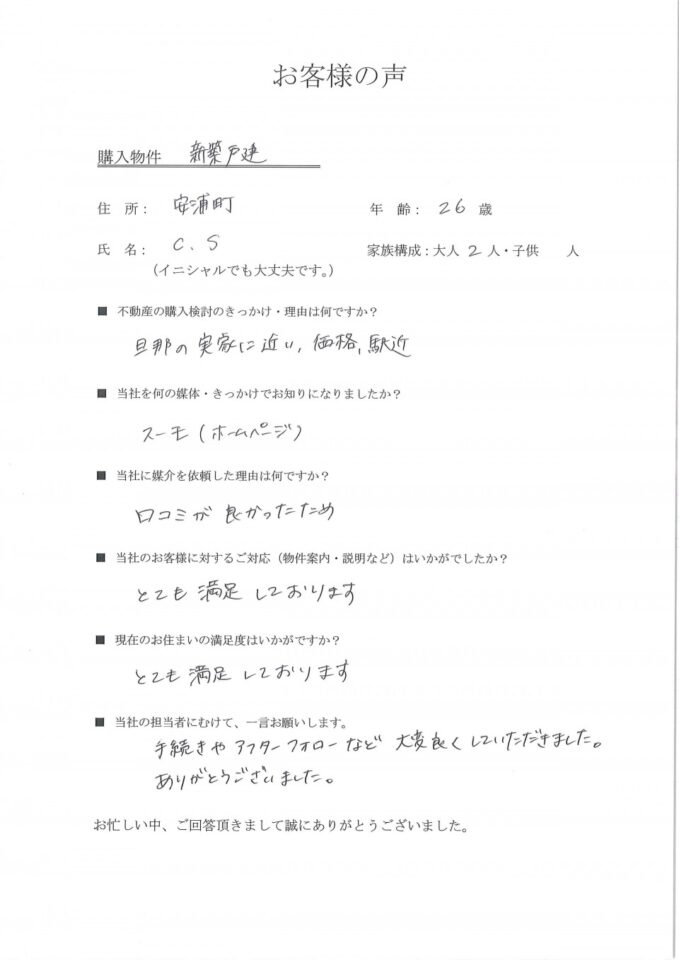 お客様の声
購入物件 新築戸建
住 所： 安浦町 年 齢： 26 歳
氏 名： C.S 家族構成：大人 2 人・子供 人
（イニシャルでも大丈夫です。）
■ 不動産の購入検討のきっかけ・理由は何ですか？
旦那の実家に近い, 価格, 駅近
■ 当社を何の媒体・きっかけでお知りになりましたか？
スーモ (ホームページ)
■ 当社に媒介を依頼した理由は何ですか？
口コミが良かったため
■ 当社のお客様に対するご対応（物件案内・説明など）はいかがでしたか？
とても満足しております
■ 現在のお住まいの満足度はいかがですか？
とても満足しております
■ 当社の担当者にむけて、一言お願いします。
手続きやアフターフォローなど大変良くしていただきました。
ありがとうございました。
お忙しい中、ご回答頂きまして誠にありがとうございました。